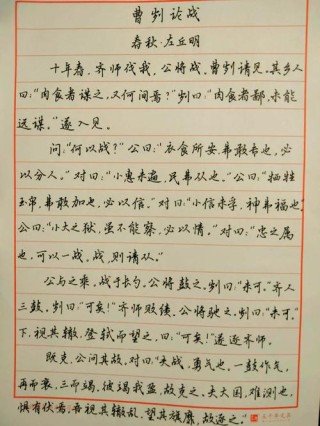 曹刿论战
春秋·左丘明
十年春，齐师伐我。公将战。曹刿请见。其乡人
曰：“肉食者谋之，又何间焉？”刿曰：“肉食者鄙，未能
远谋。”遂入见。
问：“何以战？”公曰：“衣食所安，弗敢专也，必
以分人。”对曰：“小惠未遍，民弗从也。”公曰：“牺牲
玉帛，弗敢加也，必以信。”对曰：“小信未孚，神弗福也。”
公曰：“小大之狱，虽不能察，必以情。”对曰：“忠之属
也。可以一战，战，则请从。”
公与之乘，战于长勺。公将鼓之。刿曰：“未可。”齐人
三鼓。刿曰：“可矣！”齐师败绩。公将驰之。刿曰：“未可。”
下，视其辙，登轼而望之，曰：“可矣！”遂逐齐师。
既克，公问其故。对曰：“夫战，勇气也，一鼓作气，
再而衰，三而竭。彼竭我盈，故克之。夫大国，难测也，
惧有伏焉。吾视其辙乱，望其旗靡，故逐之。”